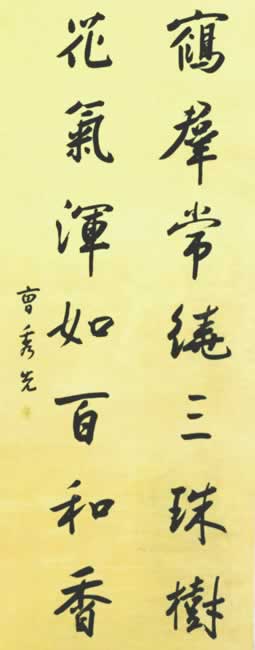 鶴群常繞三珠樹
花氣渾如百和香
曾秀先